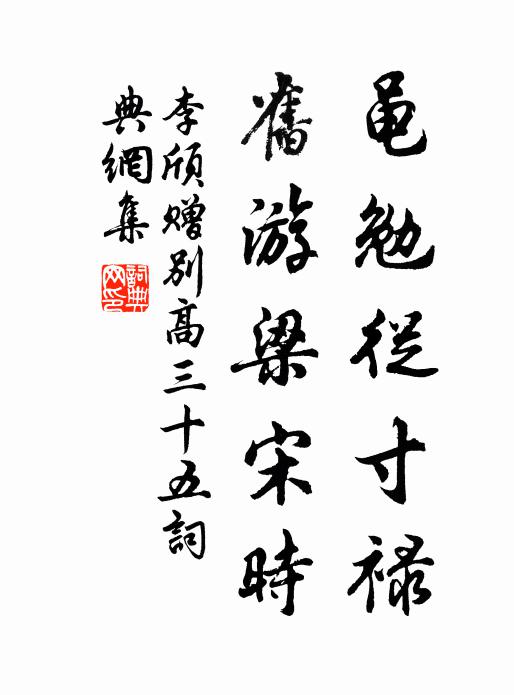 黾勉從寸禄
舊游梁宋時
李頎贈别高三十五詞
典網集
詞典
网印